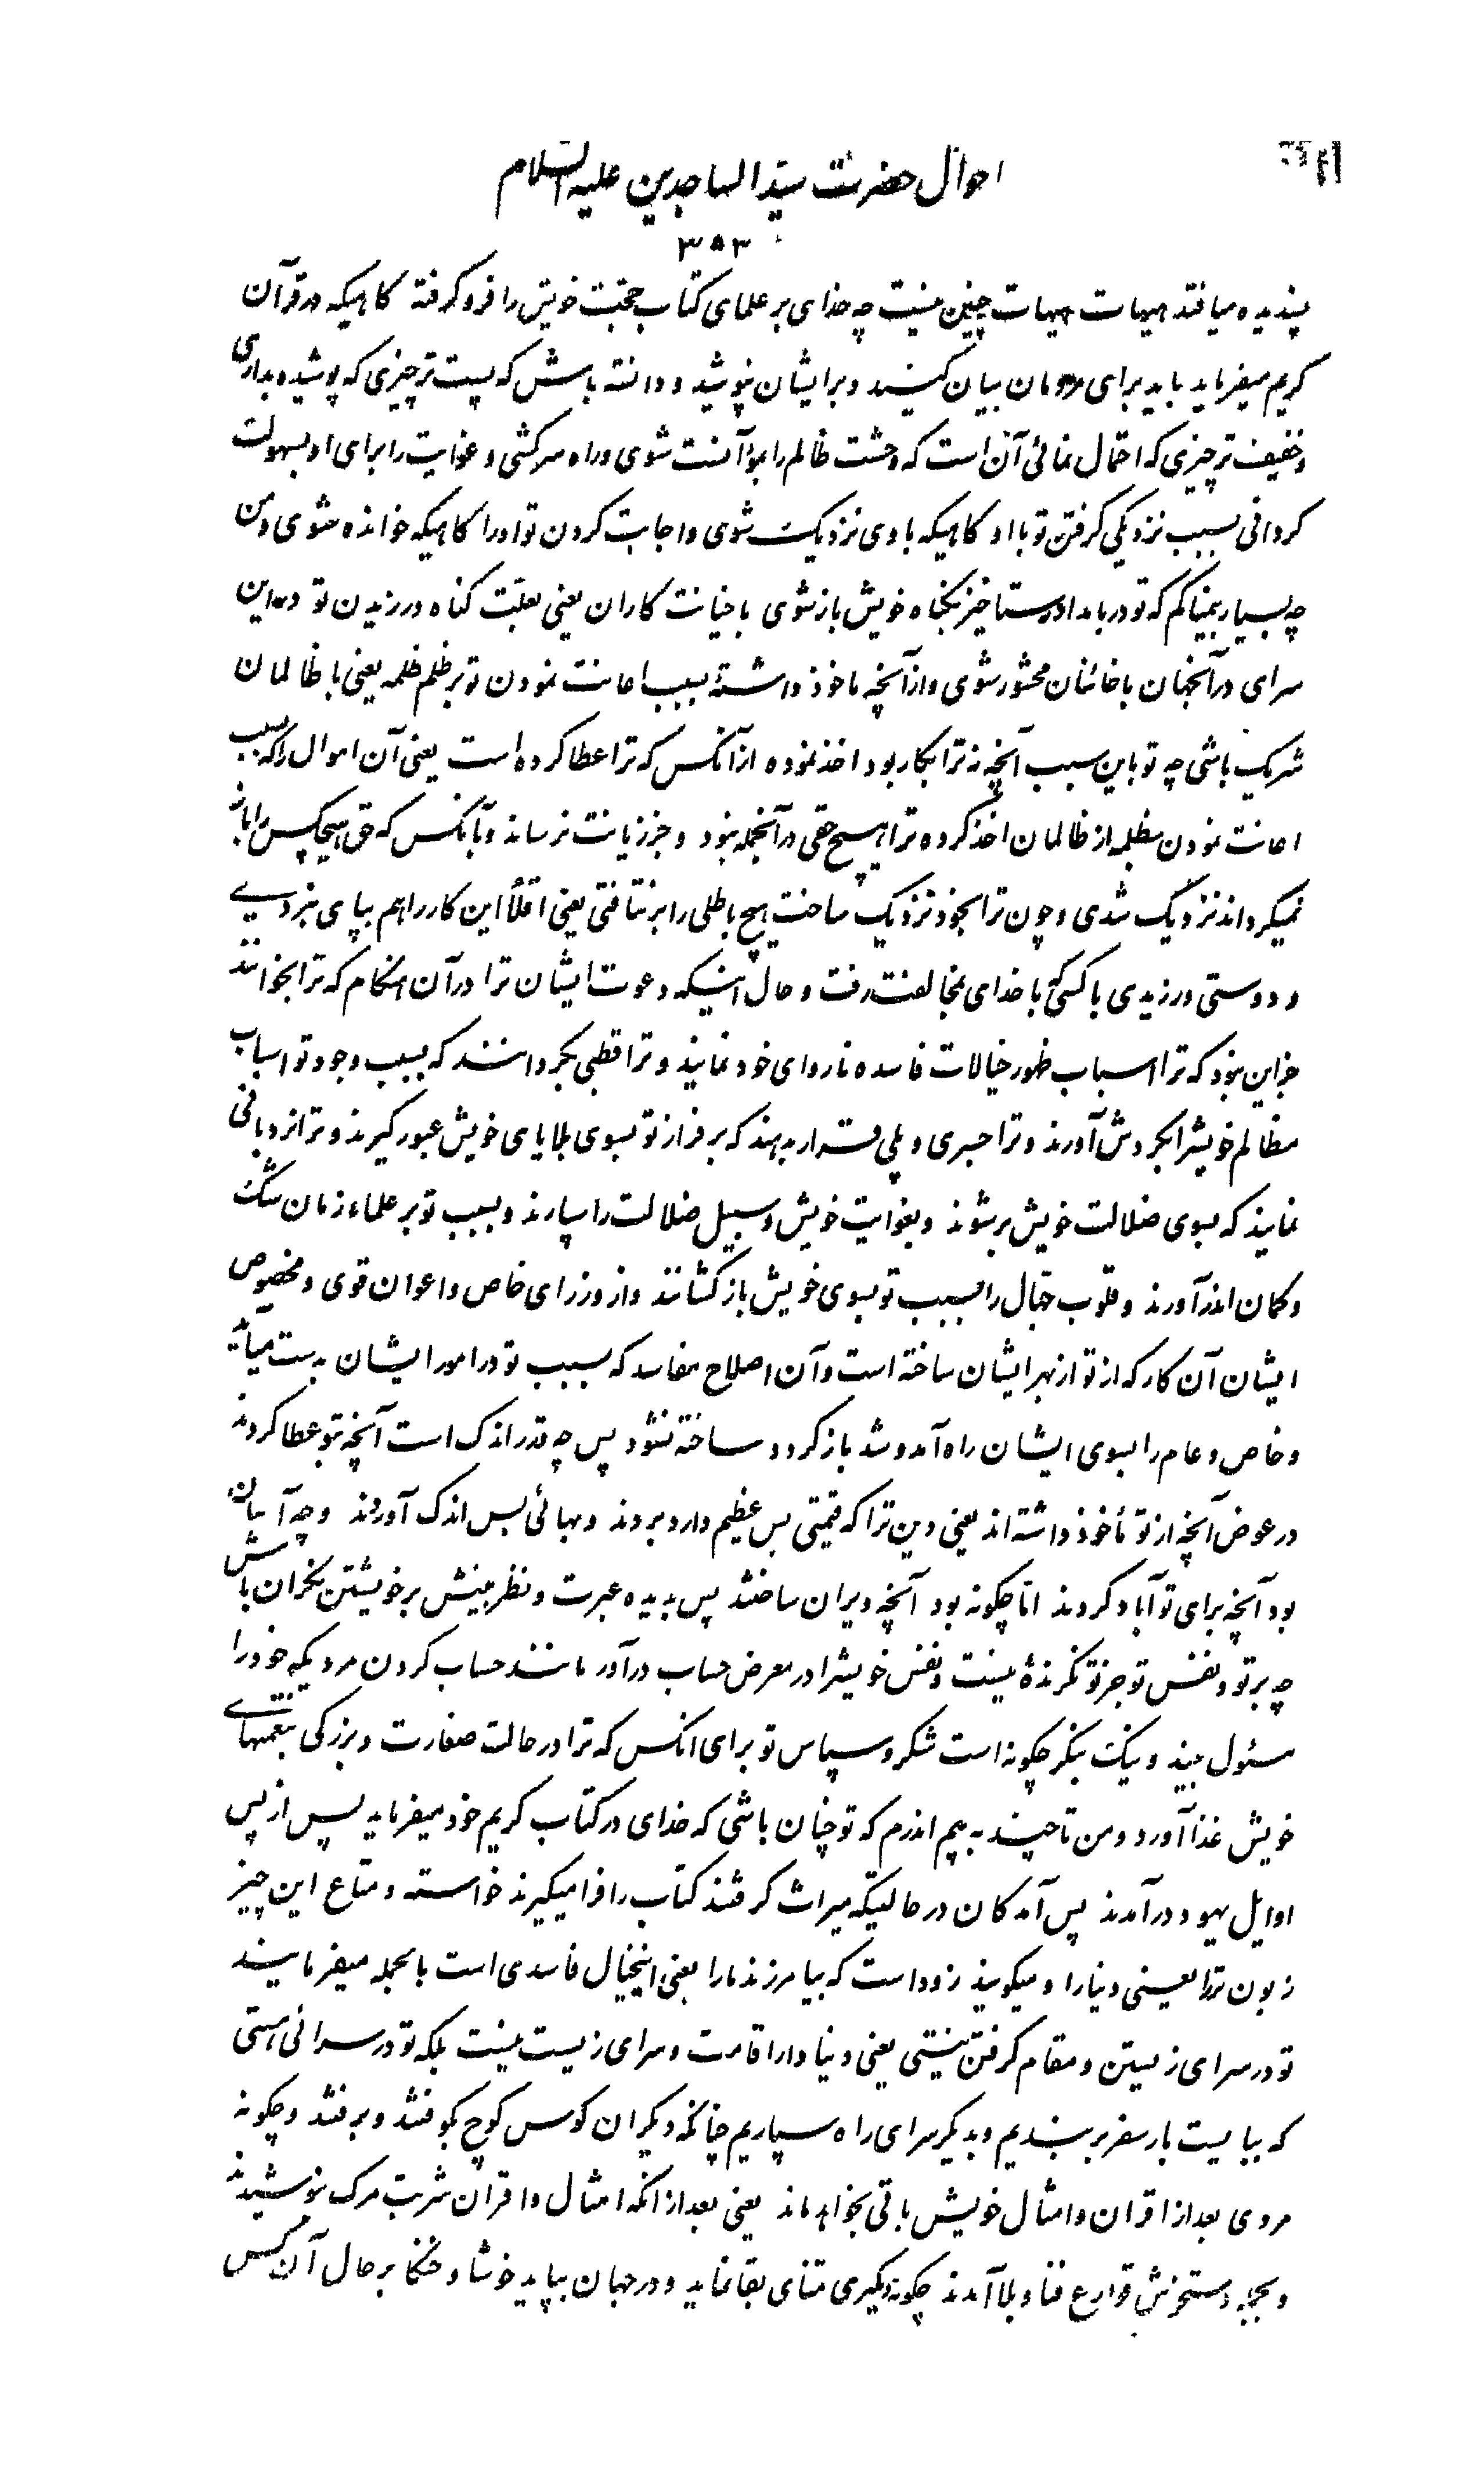 احوال حضرت سید الساجدین علیه السلام
۳۵۳
پندیده میافتد هیهات هیهات چنین نیست چه خدای بر علمای کتاب حجت خویش را فرو گرفته گاهیکه در قرآن
کریم میفرماید باید برای مردمان بیان کنید و برایشان نپوشید و دانسته باش که پست تر چیزی که پوشیده بداری
و خفیف تر چیزی که احتمال نمائی آن است که وحشت ظالم را بموآنست شوی و راه سرکشی و غوایت را برای او بسهولت
گردانی بسبب نزدیکی گرفتن تو با او گاهیکه با وی نزدیک شوی و اجابت کردن تو او را گاهیکه خوانده شوی و من
چه بسیار بیمناکم که تو در بامداد رستاخیز بگناه خویش باز شوی با خیانت کاران یعنی بعلت گناه ورزیدن تو در این
سرای در آنجهان با خائنان محشور شوی و از آنچه ماخوذ داشته بسبب اعانت نمودن تو بر ظلم ظلمه یعنی با ظالمان
شریک باشی چه تو باین سبب آنچه نه ترا بکار بود اخذ نموده از آنکس که ترا عطا کرده است یعنی آن اموال را که بسبب
اعانت نمودن مظلمه از ظالمان اخذ کرده ترا هیچ حقی در آنجمله نبود و جز زیانت نرساند و بآنکس که حق هیچکس را باز
نمیگرداند نزدیک شدی و چون ترا بخود نزدیک ساخت هیچ باطلی را برنتافتی یعنی اقلاً این کار را هم بپای نبردی
و دوستی ورزیدی با کسیکه با خدای بمخالفت رفت و حال اینکه دعوت ایشان ترا در آن هنگام که ترا بخوانند
جز این نبود که ترا اسباب ظهور خیالات فاسده ناروای خود نمایند و ترا قطبی بگردانند که بسبب وجود تو اسباب
مظالم خویش را بگردش آورند و ترا جسری و پلی قرار بدهند که بر فراز تو بسوی بلایای خویش عبور گیرند و ترا نردبانی
نمایند که بسوی ضلالت خویش برشوند و بغوایت خویش و سبیل ضلالت را سپارند و بسبب تو بر علماء زمان شک
و گمان اندر آورند و قلوب جهال را بسبب تو بسوی خویش باز کشانند و از وزرای خاص و اعوان قوی و مخصوص
ایشان آن کار که از تو از بهر ایشان ساخته است و آن اصلاح مفاسد که بسبب تو در امور ایشان بدست میآید
و خاص و عام را بسوی ایشان راه آمد و شد باز گردد ساخته نشود پس چه قدر اندک است آنچه بتو عطا کردند
در عوض آنچه از تو مأخوذ داشته اند یعنی دین ترا که قیمتی بس عظیم دارد بردند و بهائی بس اندک آوردند و چه آسان
بود آنچه برای تو آباد کردند اما چگونه بود آنچه ویران ساختند پس بدیده عبرت و نظر بینش بر خویشتن نگران باش
چه بر تو و نفس تو جز تو نگرنده نیست و نفس خویش را در معرض حساب درآور مانند حساب کردن مردیکه خود را
مسئول بیند و نیک بنگر چگونه است شکر و سپاس تو برای انکس که ترا در حالت صغارت و بزرگی بنعمتهای
خویش غذا آورد و من تا چند به بیم اندرم که تو چنان باشی که خدای در کتاب کریم خود میفرماید پس از پس
اوایل یهود درآمدند پس آمدگان در حالتیکه میراث گرفتند کتاب را فرا میگیرند خواسته و متاع این چیز
زبون تر را یعنی دنیا را و میگویند زود است که بیامرزند ما را یعنی اینخیال فاسدی است بالجمله میفرمایند
تو در سرای زیستن و مقام گرفتن نیستی یعنی دنیا دار اقامت و سرای زیست نیست بلکه تو در سرائی هستی
که ببایست بار سفر بربندیم و بدیگر سرای راه سپاریم چنانکه دیگران کوس کوچ بکوفتند و برفتند و چگونه
مردی بعد از اقران و امثال خویش باقی بخواهد ماند یعنی بعد از انکه امثال و اقران شربت مرک نوشیدند
و بجمله دستخوش قوارع فنا و بلا آمدند چگونه دیگری تمنای بقا نماید و در جهان بپاید خوشا و خنکا بر حال آن کس